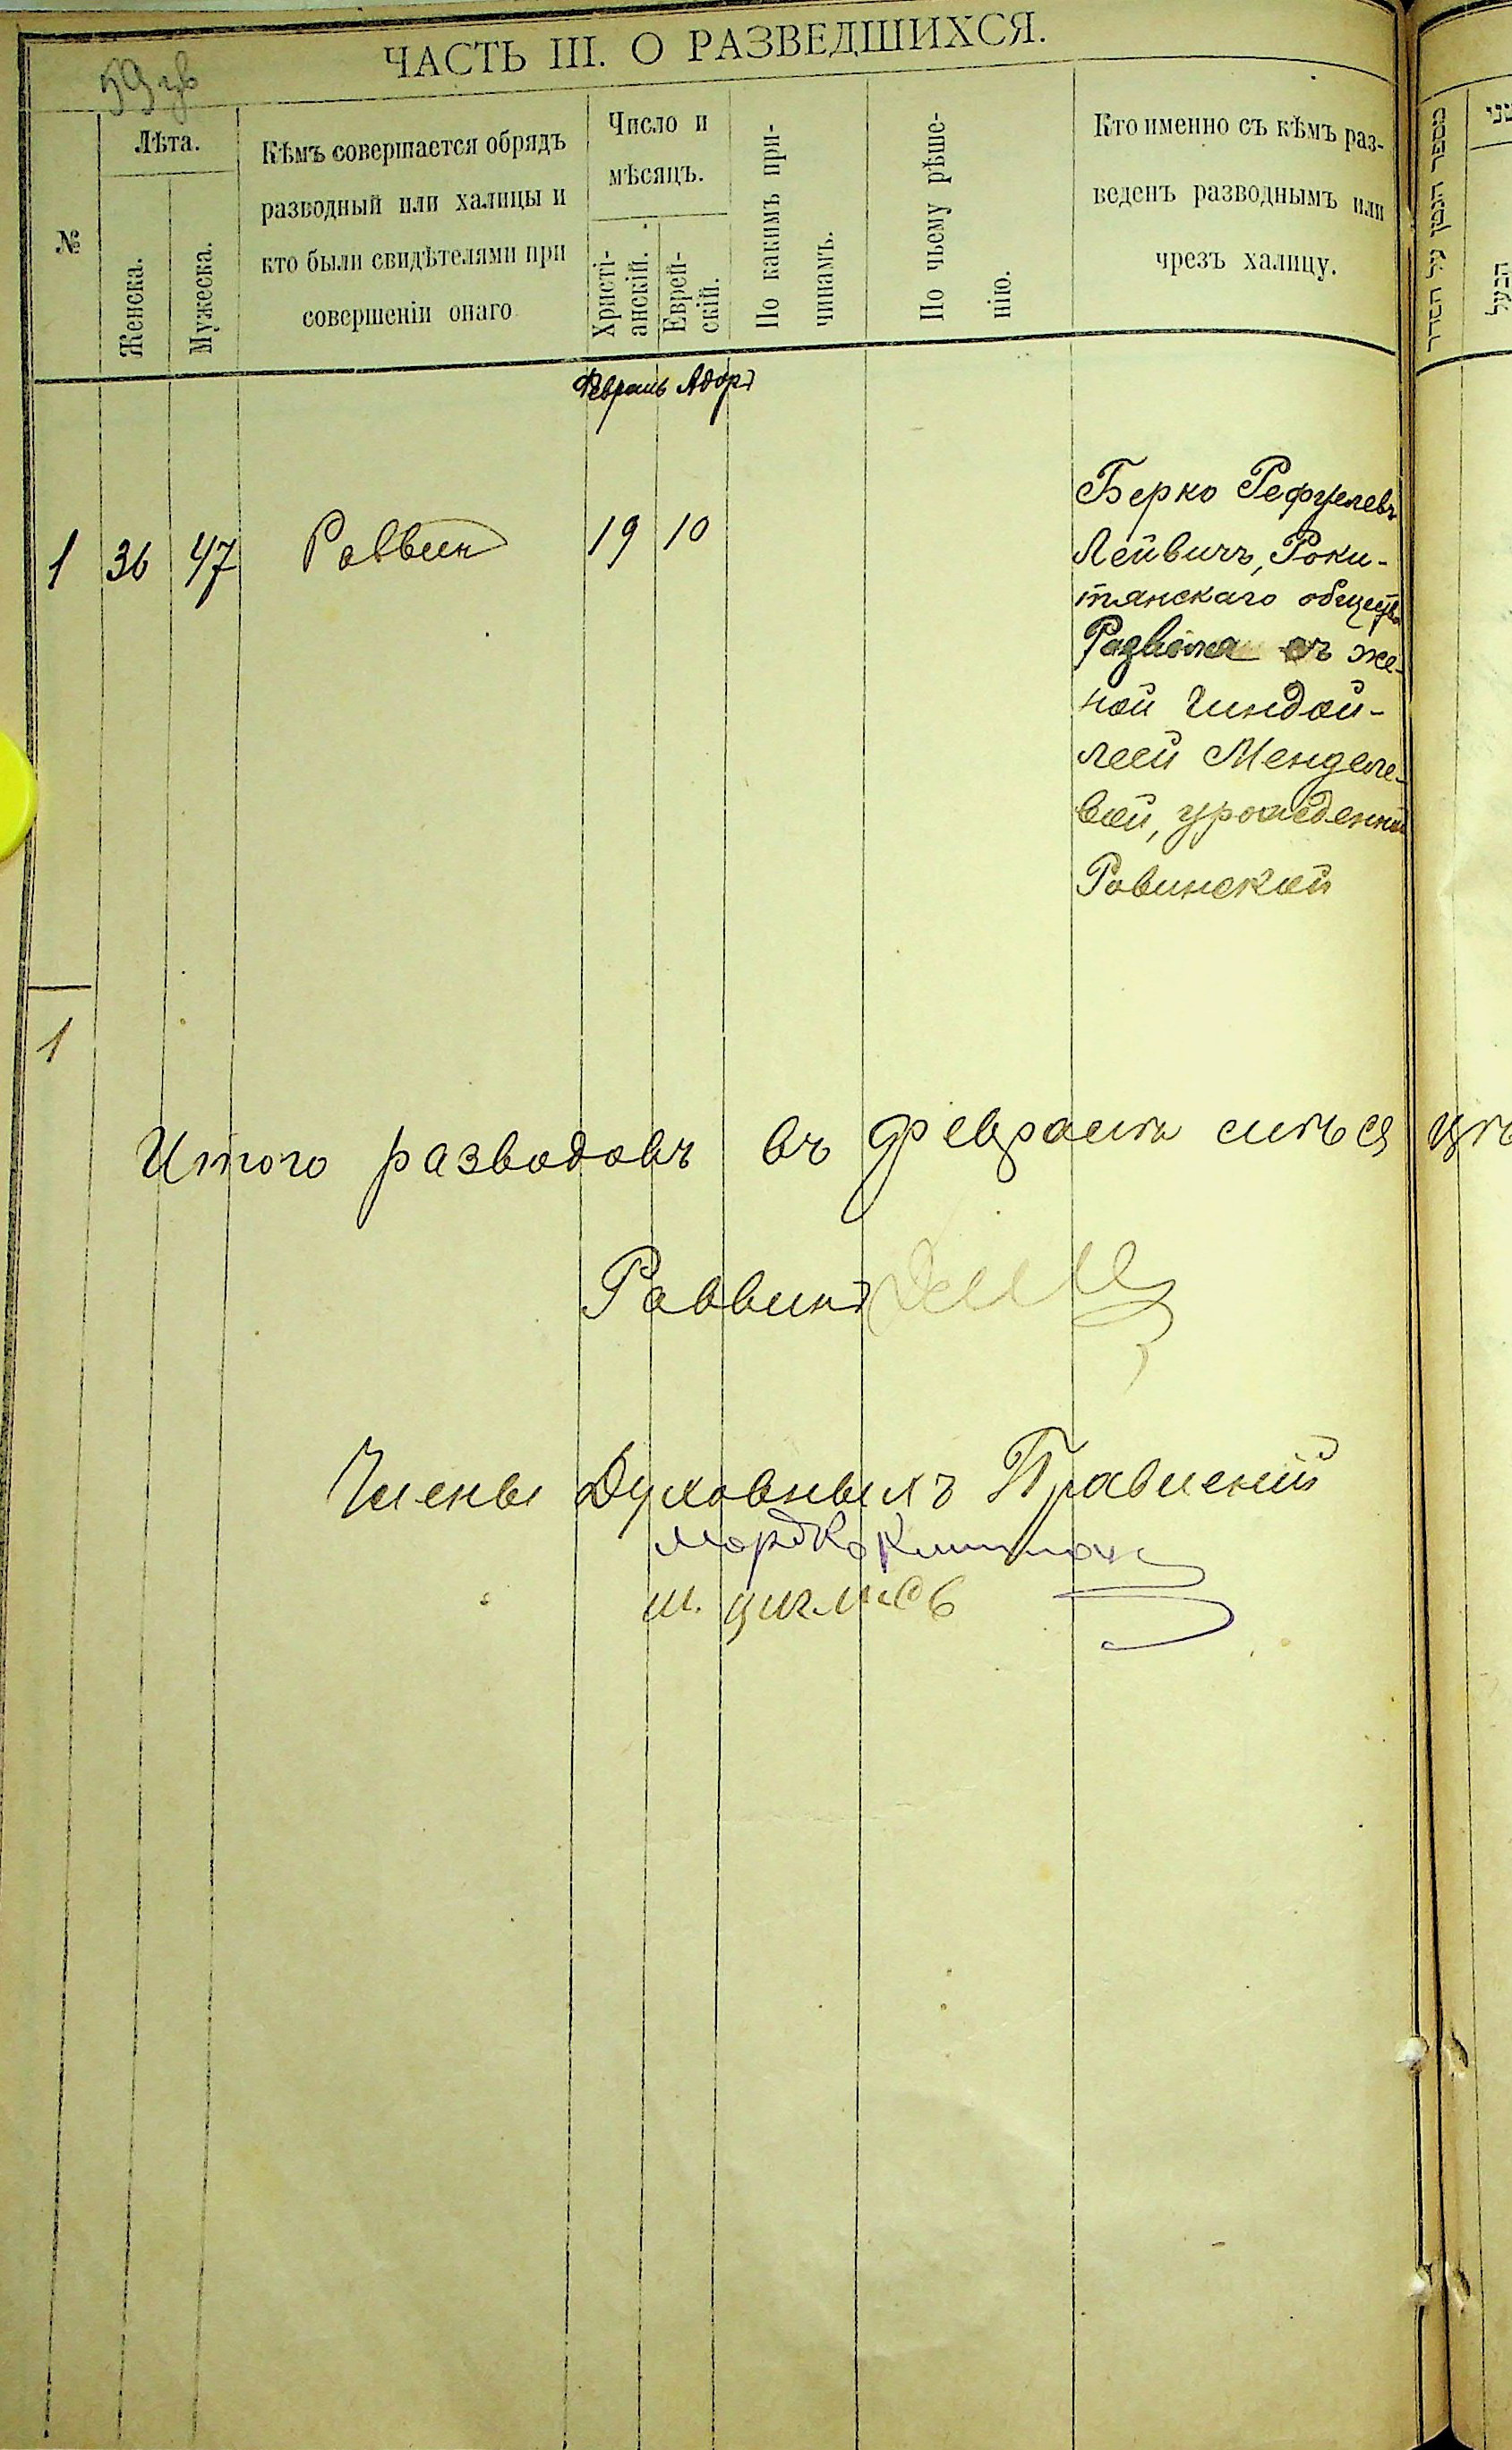 59
ЧАСТЬ III. О РАЗВЕДШИХСЯ.
№
Лѣта.
Женска.
Мужеска.
Кѣмъ совершается обрядъ
разводный или халицы и
кто были свидѣтелями при
совершеніи онаго
Число и
мѣсяцъ.
Христі-
анскій.
Еврей-
скій.
По какимъ при-
чинамъ.
По чьему рѣше-
нію.
Кто именно съ кѣмъ раз-
веденъ разводнымъ или
чрезъ халицу.
מספר הגטין על הסדר
הבעל
Февраль Адаръ
1 36 47 Раввин 19 10
Берко
Лейвичъ, Роки-
тянскаго общества
съ же-
ной Гиндой-
леей Менделе-
вой, урожденной
Ровинской
1
Итого разводовъ въ февралѣ
Раввинъ
Члены Духовныхъ Правленій
Мордко
Ш.